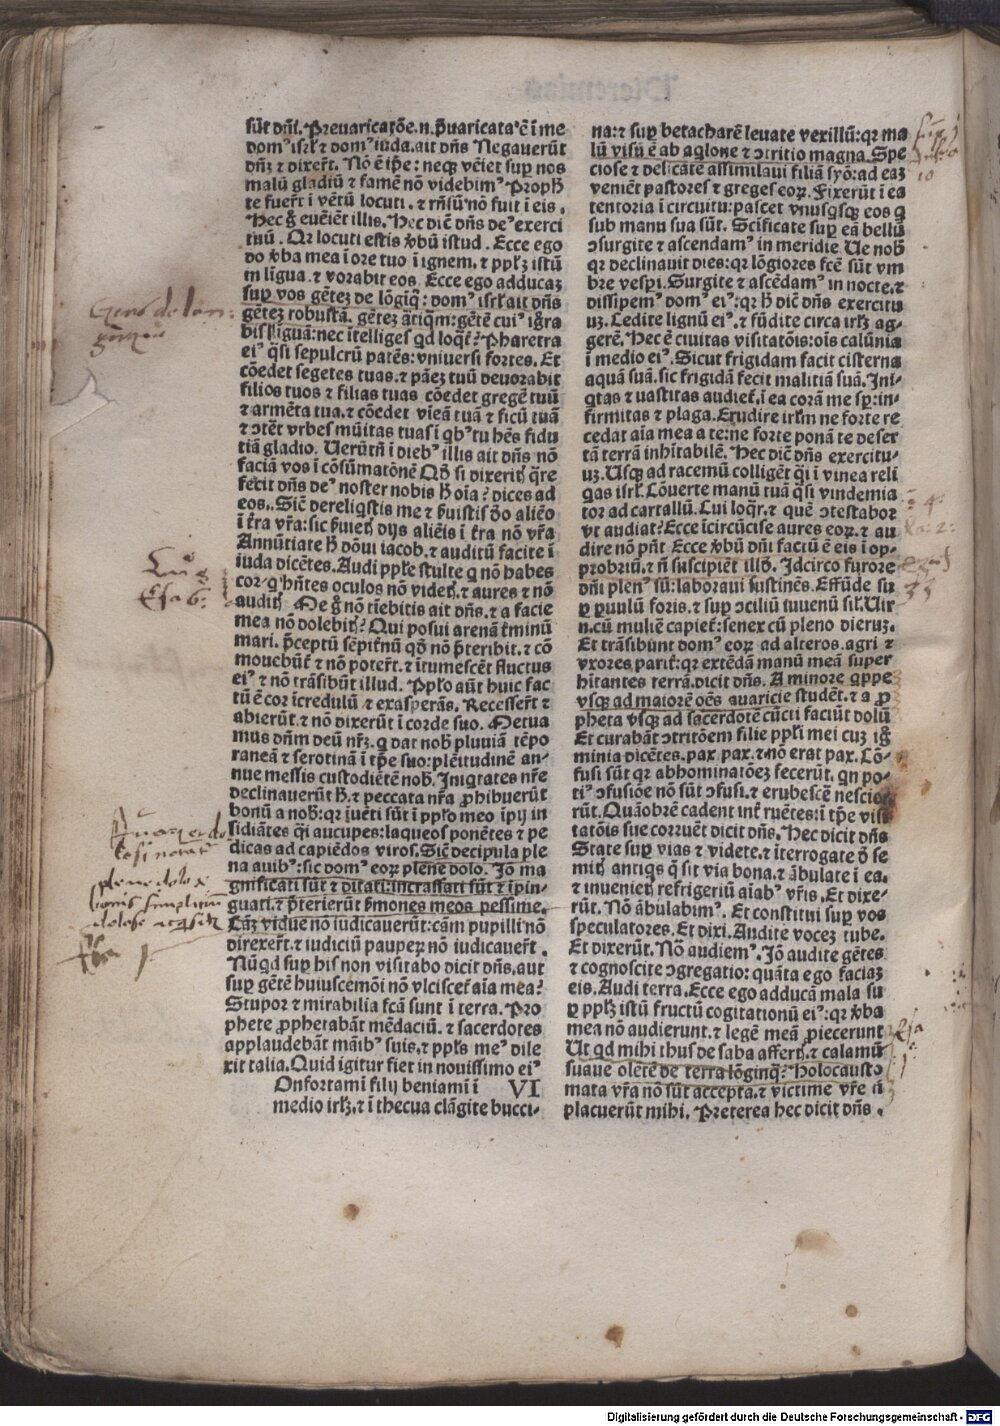 sūt dñi. Preuaricatōe.n. p̄uaricata ē ī me
domꝰ isrl̓ ⁊ domꝰ iuda. ait dñs Negauerūt
dn̄ꝫ ⁊ dixer̄t. Nō ē ip̄e: neqꝫ vēiet suꝑ nos
malū gladiū ⁊ famē nō videbimꝰ Proph̓
te fuer̄t ī vētū locuti. ⁊ rn̄sū nō fuit ī eis.
Hec g̓ euēiēt illis. Hec diē dñs deꝰ exerci
tuū. Qr locuti estis ꝟbū istud. Ecce ego
do ꝟba mea ī ore tuo ī ignem. ⁊ ppl̓ꝫ istū
in līgua. ⁊ vorabit eos. Ecce ego adducaꝫ
suꝑ vos gēteꝫ de lōgīq̄: domꝰ isrl̓ ait dñs
gēteꝫ robustā. gēteꝫ ātiq̄m: gētē cuiꝰ ig̓ra
bis līguā: nec ītelliges qd loqt̓: Pharetra
eiꝰ q̄si sepulcrū patēs: vniuersi fortes. Et
cōedet segetes tuas. ⁊ pāeꝫ tuū deuorabit
filios tuos ⁊ filias tuas cōedet gregē tuū
⁊ armēta tua. ⁊ cōedet vīeā tuā ⁊ ficū tuā
⁊ ↄtēt vrbes mūitas tuas ī qbꝰ tu hēs fidu
tiā gladio. Uerūtn̄ ī diebꝰ illis ait dñs nō
faciā vos ī cōsūmatōnē Qd̓ si dixerit̓ q̄re
fecit dñs deꝰ noster nobis h̓ oīa? dices ad
eos. Siē dereliqstis me ⁊ ẜuistis d̓o aliēo
ī t̓ra vr̄a: sic ẜuiet̓ dijs aliēis ī t̓ra nō vr̄a
Annūtiate h̓ dōui iacob. ⁊ auditū facite ī
iuda dicētes. Audi pple stulte q nō habes
cor. q hn̄tes oculos nō videt̓. ⁊ aures ⁊ nō
audit̓ Me g̓ nō tīebitis ait dñs. ⁊ a facie
mea nō dolebit̓? Qui posui arenā t̓minū
mari. p̄ceptū sēpit̓nū qd̓ nō p̄teribit. ⁊ cō
mouebūt̓ ⁊ nō poter̄t. ⁊ ītumescēt fluctus
eiꝰ ⁊ nō trāsibūt illud. Pplo aūt huic fac
tū ē cor īcredulū ⁊ exasperās. Recesser̄t ⁊
abierūt. ⁊ nō dixerūt ī corde suo. Metua
mus dn̄m deū nr̄ꝫ. q dat nob̓ pluuiā tēpo
raneā ⁊ serotinā ī tp̄e suo: plēitudinē an-
nue messis custodiētē nob̓. Iniqtates nr̄e
declinauerūt h̓. ⁊ peccata nr̄a ꝓhibuerūt
bonū a nob̓: qr iuēti sūt ī pplo meo īpij in
sidiātes q̄si aucupes: laqueos ponētes ⁊ pe
dicas ad capiēdos viros. Siē decipula ple
na auibꝰ: sic domꝰ eoꝝ plene dolo. Iō ma
gnificati sūt ⁊ ditati: incrassati sūt ⁊ īpin-
guati. ⁊ p̄terierūt ẜmones meos pessime.
Cāꝫ vidue nō iudicauerūt: cām pupilli nō
direxer̄t. ⁊ iudiciū paupeꝝ nō iudicauer̄t.
Nūqd suꝑ his non visitabo dicit dñs. aut
suꝑ gētē huiuscēmōi nō vlciscet̓ aīa mea?
Stupor ⁊ mirabilia fcā sunt ī terra. Pro
phete ꝓphetabāt mēdaciū. ⁊ sacerdotes
applaudebāt māibꝰ suis. ⁊ ppl̓s meꝰ dile
xit talia. Quid igitur fiet in nouissimo eiꝰ
Onfortamī filij beniamī ī VI
medio irl̓ꝫ. ⁊ ī thecua clāgite bucci-
na: ⁊ suꝑ betacharē leuate vexillū: qr ma
lū visū ē ab aqlone ⁊ ↄtritio magna. Spe
ciose ⁊ delicate assimilaui filiā syō: ad eaꝫ
veniēt pastores ⁊ greges eoꝝ. Fixerūt ī ea
tentoria ī circuitu: pascet vnusqsqꝫ eos q
sub manu sua sūt. Scīficate suꝑ eā bellū
ↄsurgite ⁊ ascendamꝰ in meridie. Ue nob̓
qr declinauit dies: qr lōgiores fcē sūt vm
bre vesꝑi. Surgite ⁊ ascēdamꝰ in nocte. ⁊
dissipemꝰ domꝰ eiꝰ: qr h̓ diē dñs exercitu
uꝫ. Cedite lignū eiꝰ. ⁊ fūdite circa irl̓ꝫ ag-
gerē. Hec ē ciuitas visitatōis: oīs calūnia
ī medio eiꝰ. Sicut frigidam facit cisterna
aquā suā. sic frigidā fecit malitiā suā. Ini-
qtas ⁊ uastitas audiet̓. ī ea corā me sꝑ: in-
firmitas ⁊ plaga. Erudire irl̓m ne forte re
cedat aīa mea a te: ne forte ponā te deser
tā terrā inhītabilē. Hec diē dñs exercitu-
uꝫ. Usqꝫ ad racemū colligēt q̄si ī vinea reli
gas isrl̓. Cōuerte manū tuā q̄si vindemia
tor ad cartallū. Cui loqr̄. ⁊ quē ↄtestabor
vt audiat? Ecce īcircūcise aures eoꝝ. ⁊ au
dire nō pn̄t Ecce ꝟbū dñi factū ē eis ī op-
probriū. ⁊ n̄ suscipiēt illd̓. Idcirco furore
dñi plenꝰ sū: laboraui sustinēs. Effūde su
ꝑ ꝑuulū foris. ⁊ suꝑ ↄciliū iuuenū sil̓. Uir
n. cū muliē capiet̓: senex cū pleno dieruꝫ.
Et trāsibunt domꝰ eoꝝ ad alteros. agri ⁊
vxores parit̓: qr extēdā manū meā super
hītantes terrā. dicit dñs. A minore qppe
vsqꝫ ad maiorē oēs auaricie studēt. ⁊ a ꝓ
pheta vsqꝫ ad sacerdotē cūcti faciūt dolū
Et curabāt ↄtritōem filie ppl̓i mei cuꝫ ig̓
minia dicētes. pax. pax. ⁊ nō erat pax. Cō-
fusi sūt qr abhominatōeꝫ fecerūt. qn po-
tiꝰ ↄfusiōe nō sūt ↄfusi. ⁊ erubescē nescie
rūt. Quāobrē cadent int̓ ruētes: ī tp̄e visi
tatōis sue corruēt dicit dñs. Hec dicit dñs
State suꝑ vias ⁊ videte. ⁊ īterrogate d̓ se
mit̓ antiqs q̄ sit via bona. ⁊ ābulate ī ea.
⁊ inueniet̓ refrigeriū aīabꝰ vr̄is. Et dixe-
rūt. Nō ābulabimꝰ. Et constitui suꝑ vos
speculatores. Et dixi. Audite voceꝫ tube.
Et dixerūt. Nō audiemꝰ. Iō audite gētes
⁊ cognoscite ↄgregatio: quāta ego faciaꝫ
eis. Audi terra. Ecce ego adducā mala su
ꝑ ppl̓ꝫ istū fructū cogitationū eiꝰ: qr ꝟba
mea nō audierunt. ⁊ legē meā ꝓiecerunt
Ut qd mihi thus de saba affert̓. ⁊ calamū
suaue olētē de terra lōginq̄? Holocausto
mata vr̄a nō sūt accepta. ⁊ victime vr̄e n̄
placuerūt mihi. Preterea hec dicit dñs.
Digitalisierung gefördert durch die Deutsche Forschungsgemeinschaft - DFG